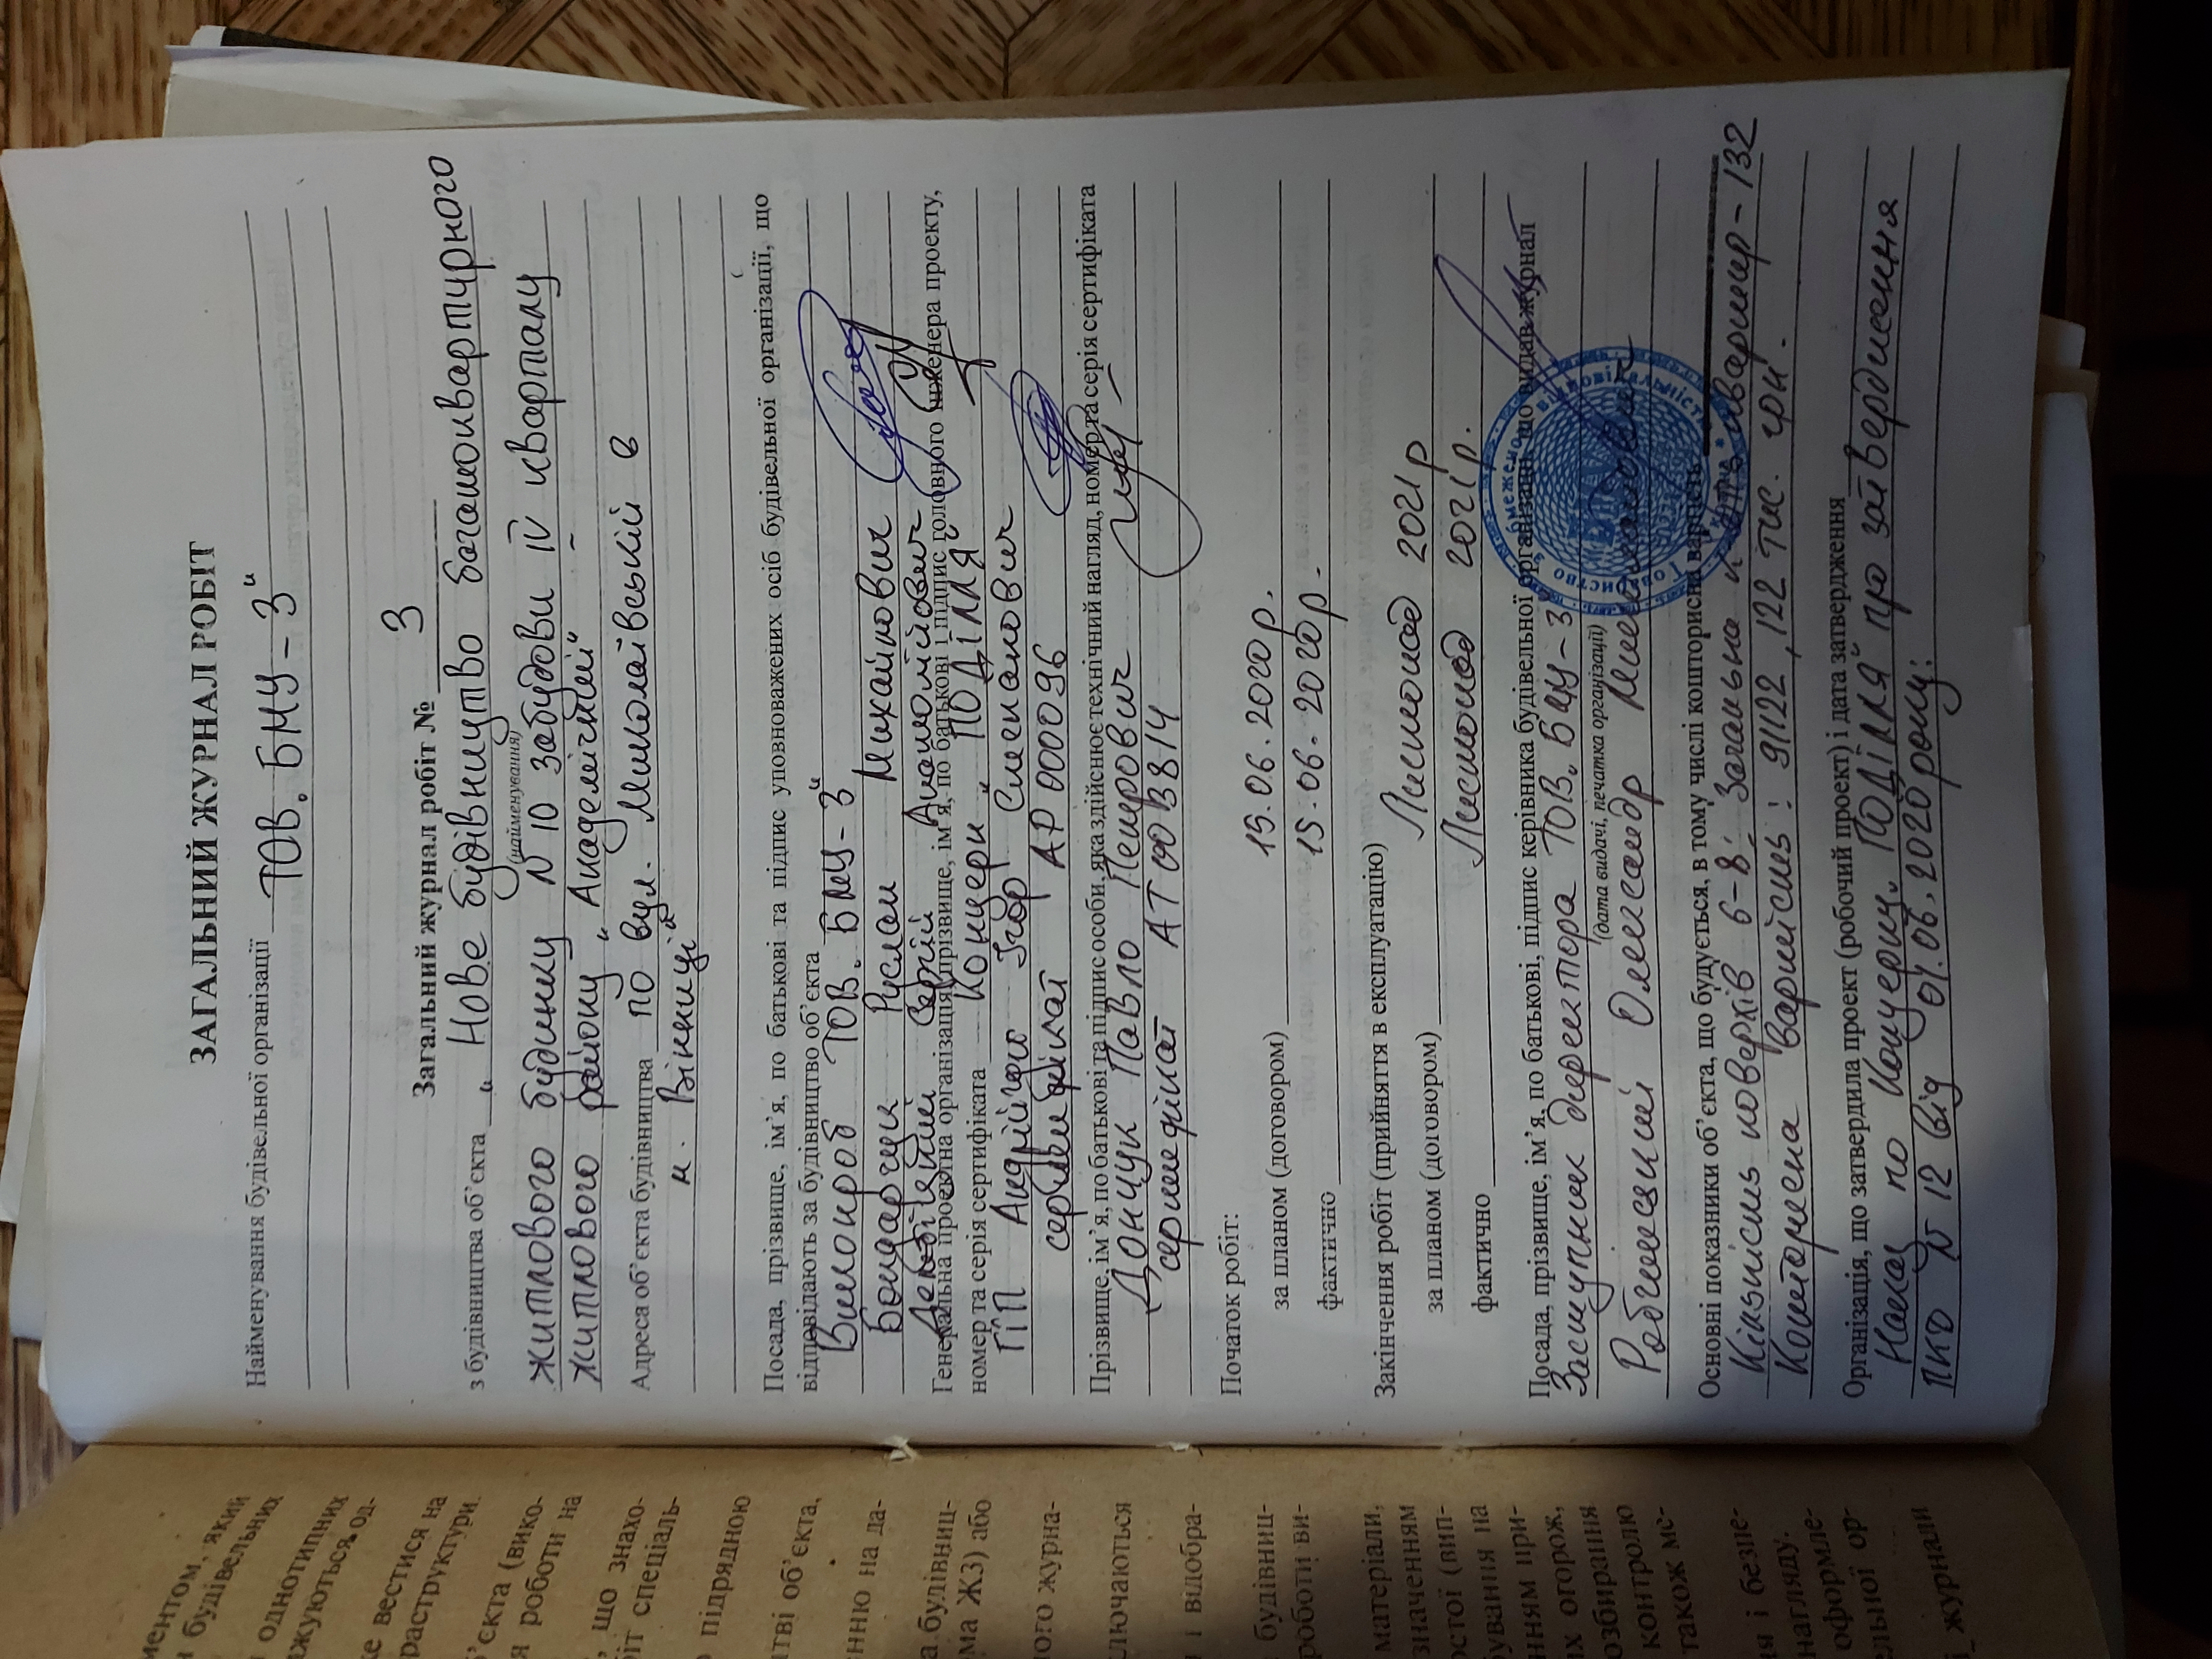 ЗАГАЛЬНИЙ ЖУРНАЛ РОБІТ
Найменування будівельної організації ТОВ „БМУ-3"
Загальний журнал робіт № 3
з будівництва об'єкта „Нове будівництво багатоквартирного
(найменування)
житлового будинку N 10 забудови IV кварталу
житлового району „Академічний"
Адреса об'єкта будівництва по вул. Миколаївській в
м. Вінниці"
Посада, прізвище, ім'я, по батькові та підпис уповноважених осіб будівельної організації, що
відповідають за будівництво об'єкта ТОВ „БМУ-3"
Виконроб
Бондарчук Руслан Михайлович
Сергій Анатолійович
Генеральна проектна організація, прізвище, ім'я, по батькові і підпис головного інженера проекту,
номер та серія сертифіката Концерн „ПОДІЛЛЯ"
ГІП Андрійчого Ігор Степанович
сертифікат АР 000096
Прізвище, ім'я, по батькові та підпис особи, яка здійснює технічний нагляд, номер та серія сертифіката
Дончук Павло Петрович
сертифікат АТ 003814
Початок робіт:
за планом (договором) 15.06.2020р.
фактично 15.06.2020р.
Закінчення робіт (прийняття в експлуатацію)
за планом (договором) Листопад 2021р
фактично Листопад 2021р.
Посада, прізвище, ім'я, по батькові, підпис керівника будівельної організації, що видав журнал
Заступник директора ТОВ „БМУ-3"
(дата видачі, печатка організації)
Олександр Миколайович
Основні показники об'єкта, що будується, в тому числі кошторисна вартість
Кількість поверхів 6-8; Загальна к-сть квартир-132
Кошторисна вартість: 91122,122 тис. грн.
Організація, що затвердила проект (робочий проект) і дата затвердження
Наказ по Концерну „ПОДІЛЛЯ" про затвердження
ПКД N 12 від 01.06.2020 року.
ментом, який
будівельних
однотипних
жуються од-
же вестися на
раструктури.
'єкта (вико-
я роботи на
, що знахо-
іт спеціаль-
підрядною
тві об'єкта,
нню на да-
а будівниц-
ма Ж3) або
ого журна-
ключаються
і відобра-
будівниц-
роботи ви-
матеріали,
значенням
остої (вип-
ування на
нням при-
их огорож,
озбирання
контролю
також мс-
ня і безпе-
нагляду.
оформле-
ельної ор-
журнали